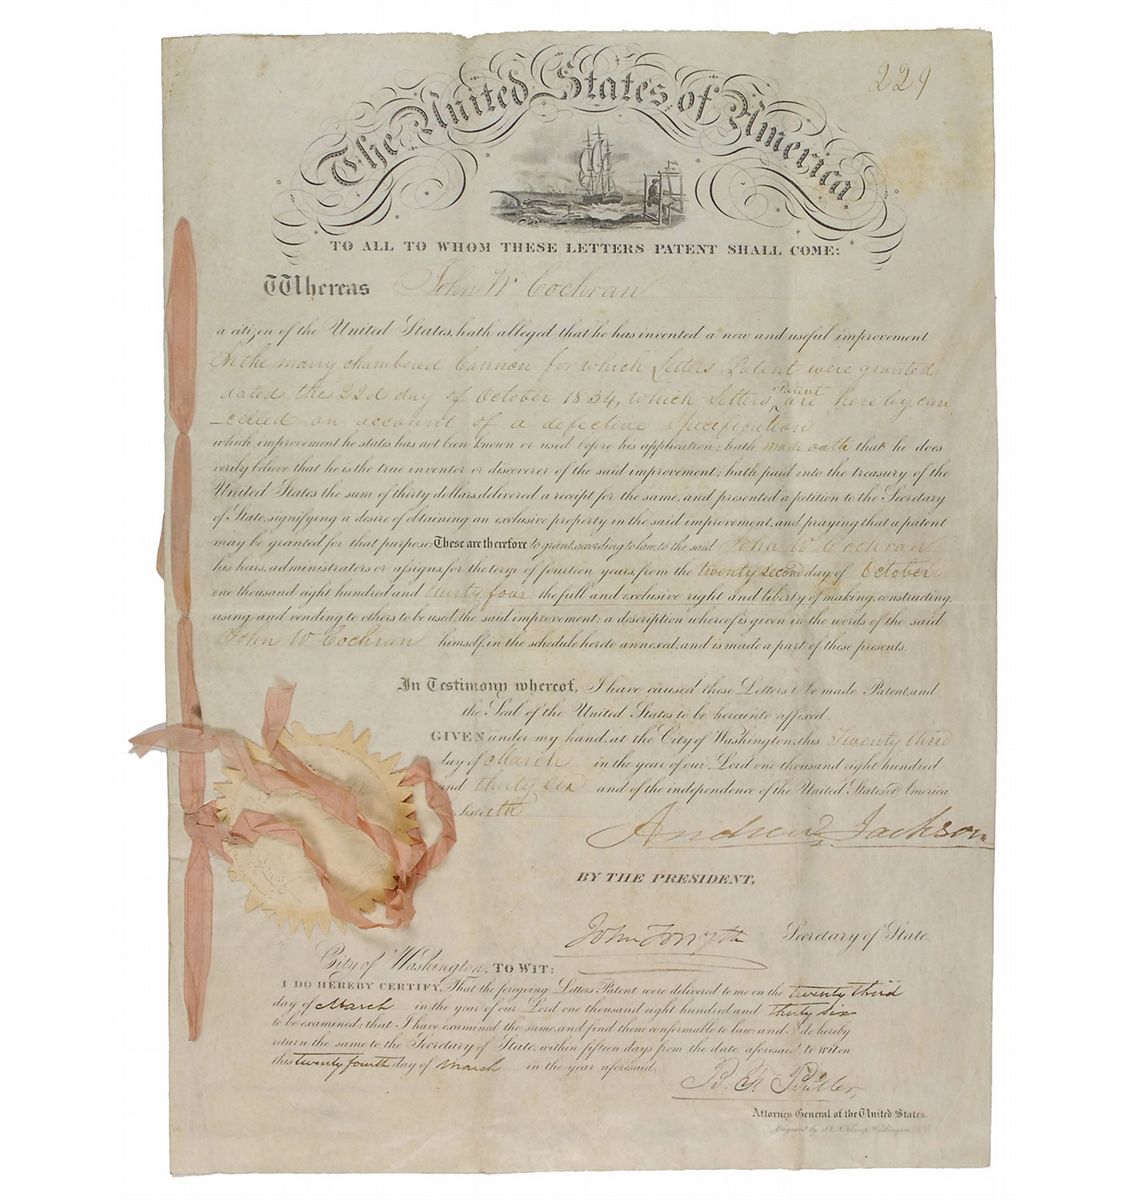 229
The United States of America
TO ALL TO WHOM THESE LETTERS PATENT SHALL COME:
Whereas John W Cochran
a citizen of the United States, hath alleged that he has invented a new and useful improvement
In the many chambered Cannon for which Letters Patent were granted
dated the 22d day of October 1834, which Letters Patent are hereby can
celled on account of a defective specification
which improvement he states has not been known or used before his application; hath made oath that he does
verily believe that he is the true inventor or discoverer of the said improvement; hath paid into the treasury of the
United States the sum of thirty dollars, delivered a receipt for the same, and presented a petition to the Secretary
of State, signifying a desire of obtaining an exclusive property in the said improvement, and praying that a patent
may be granted for that purpose: These are therefore to grant, according to law, to the said John W Cochran
his heirs, administrators or assigns, for the term of fourteen years, from the twenty second day of October
one thousand eight hundred and thirty four the full and exclusive right and liberty of making, constructing,
using, and vending to others to be used, the said improvement; a description whereof is given in the words of the said
John W Cochran himself, in the schedule hereto annexed, and is made a part of these presents.
In Testimony whereof, I have caused these Letters to be made Patent, and
the Seal of the United States to be hereunto affixed.
GIVEN under my hand, at the City of Washington, this Twenty third
day of March in the year of our Lord one thousand eight hundred
and thirty six and of the independence of the United States of America
the Sixtieth
Andrew Jackson
BY THE PRESIDENT,
John Forsyth Secretary of State.
City of Washington, TO WIT:
I DO HEREBY CERTIFY, That the foregoing Letters Patent were delivered to me on the twenty third
day of March in the year of our Lord one thousand eight hundred and thirty six
to be examined; that I have examined the same, and find them conformable to law; and I do hereby
return the same to the Secretary of State, within fifteen days from the date aforesaid, to wit: on
this twenty fourth day of March in the year aforesaid.
B. F. Butler,
Attorney General of the United States.
Engraved by Washington